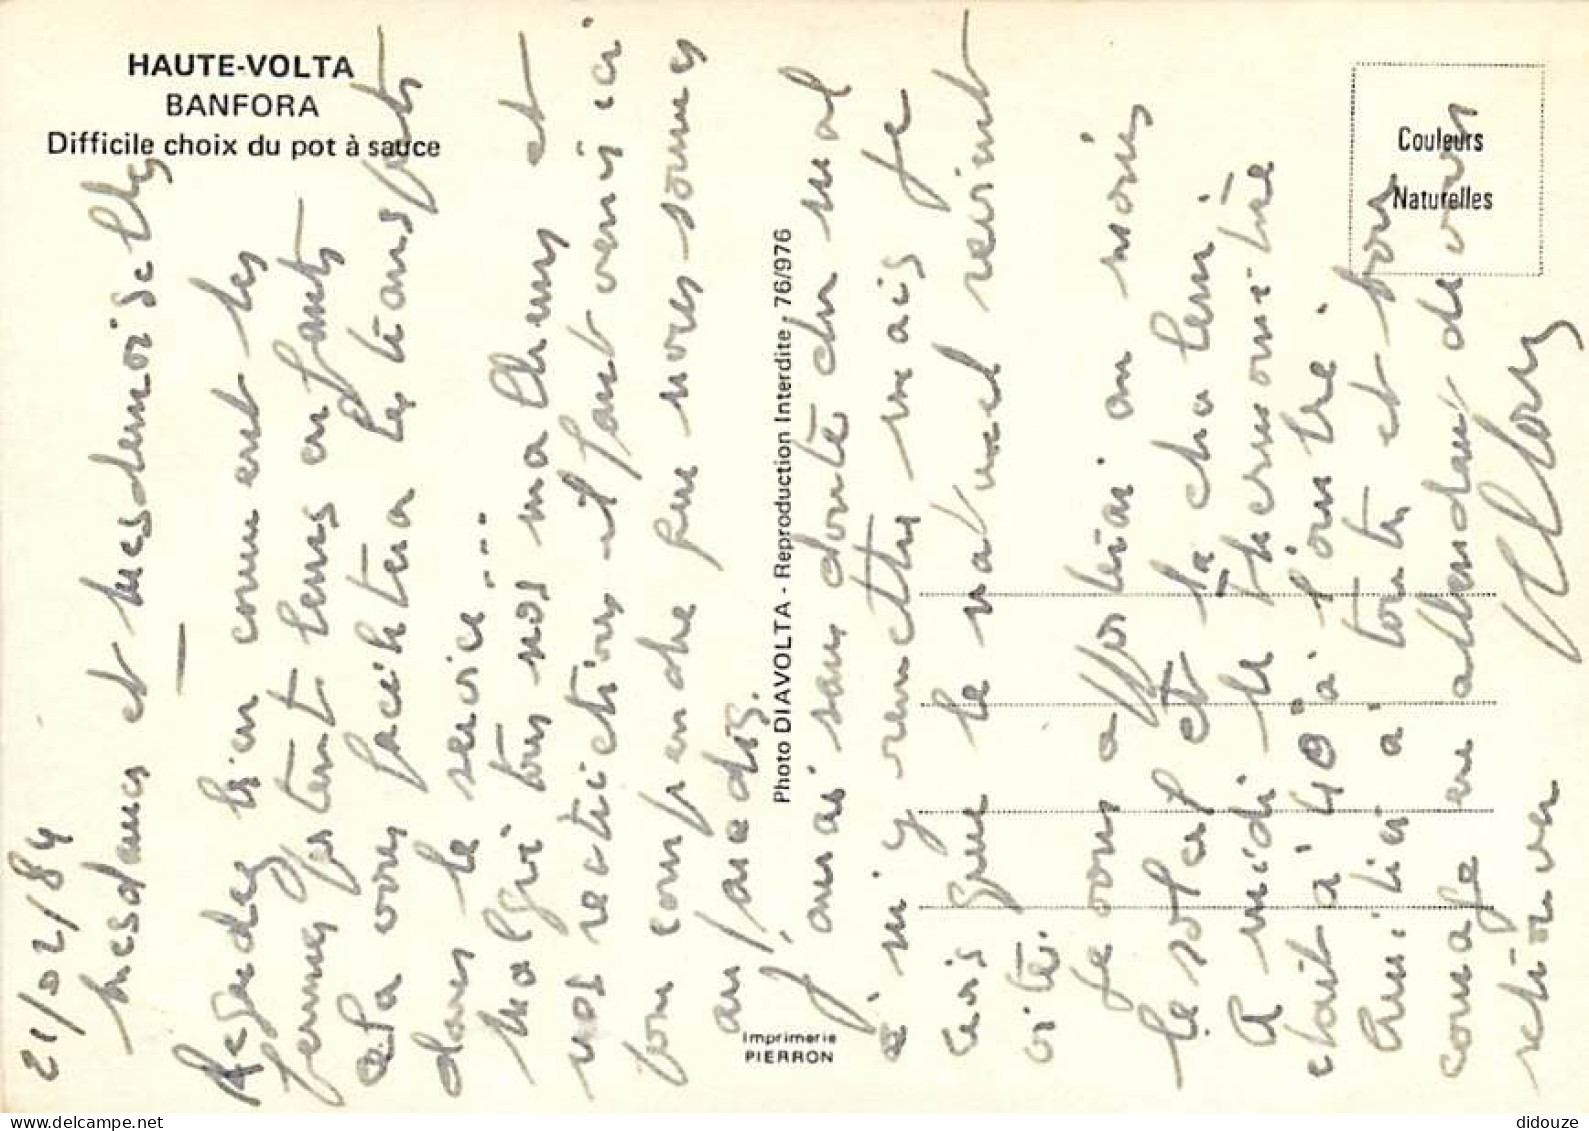 HAUTE-VOLTA
BANFORA
Difficile choix du pot à sauce
Couleurs
Naturelles
Photo DIAVOLTA - Reproduction Interdite - 76/976
Imprimerie
PIERRON
21/02/84
Mesdames et mesdemoiselles
Regardez bien comment les
femmes portent leurs enfants
cela vous facilitera les
dans le service....
Malgré tous nos malheurs et
nos restrictions il faut venir ici
pour comprendre que nous sommes
au paradis.
J'aurai sans doute du mal
à m'y remettre mais je
crois que le naturel revient
vite.
Je vous apporterai au moins
le soleil et la chaleur.
A midi le thermomètre
était à 40° à l'ombre
Amitiés à toutes et bon
courage en attendant de vous
retrouver
didouze